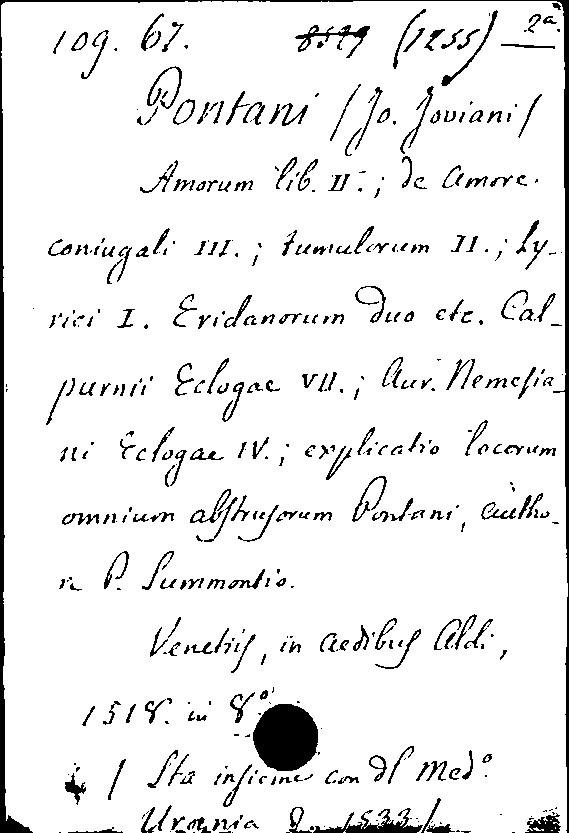 109. 67. 8579 (1255) 2ª
Pontani / Jo. Joviani /
Amorum lib. II.; de Amore
coniugali III.; tumulorum II.; Ly-
rici I. Eridanorum duo etc. Cal-
purnii Eclogae VII.; Aur. Nemesia-
ni Eclogae IV.; explicatio locorum
omnium abstrusorum Pontani, autho-
re P. Summontio.
Venetiis, in aedibus Aldi,
1518. in 8º
/ Sta insieme con dl medº
Urania 1533 /